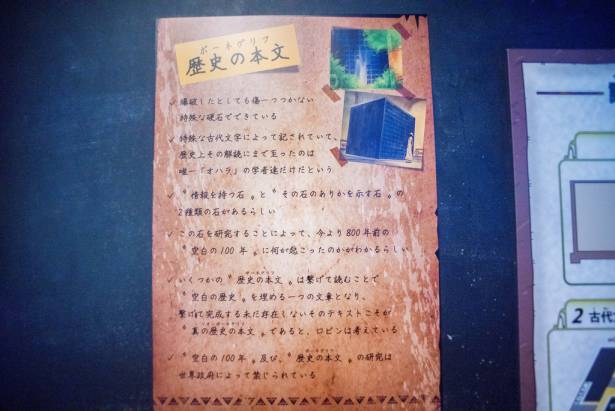 ポーネグリフ
歴史の本文
✓ 爆破したとしても傷一つつかない
特殊な硬石でできている
✓ 特殊な古代文字によって記されていて、
歴史上その解読にまで至ったのは
唯一「オハラ」の学者達だけだという
✓ 〝情報を持つ石〟と〝その石のありかを示す石〟の
2種類の石があるらしい
✓ この石を研究することによって、今より800年前の
〝空白の100年〟に何が起こったのかがわかるらしい
ポーネグリフ
✓ いくつかの〝歴史の本文〟は繋げて読むことで
〝空白の歴史〟を埋める一つの文章となり、
繋げて完成する未だ存在しないそのテキストこそが
リオ・ポーネグリフ
〝真の歴史の本文〟であると、ロビンは考えている
ポーネグリフ
✓ 〝空白の100年〟及び、〝歴史の本文〟の研究は
世界政府によって禁じられている
2 古代